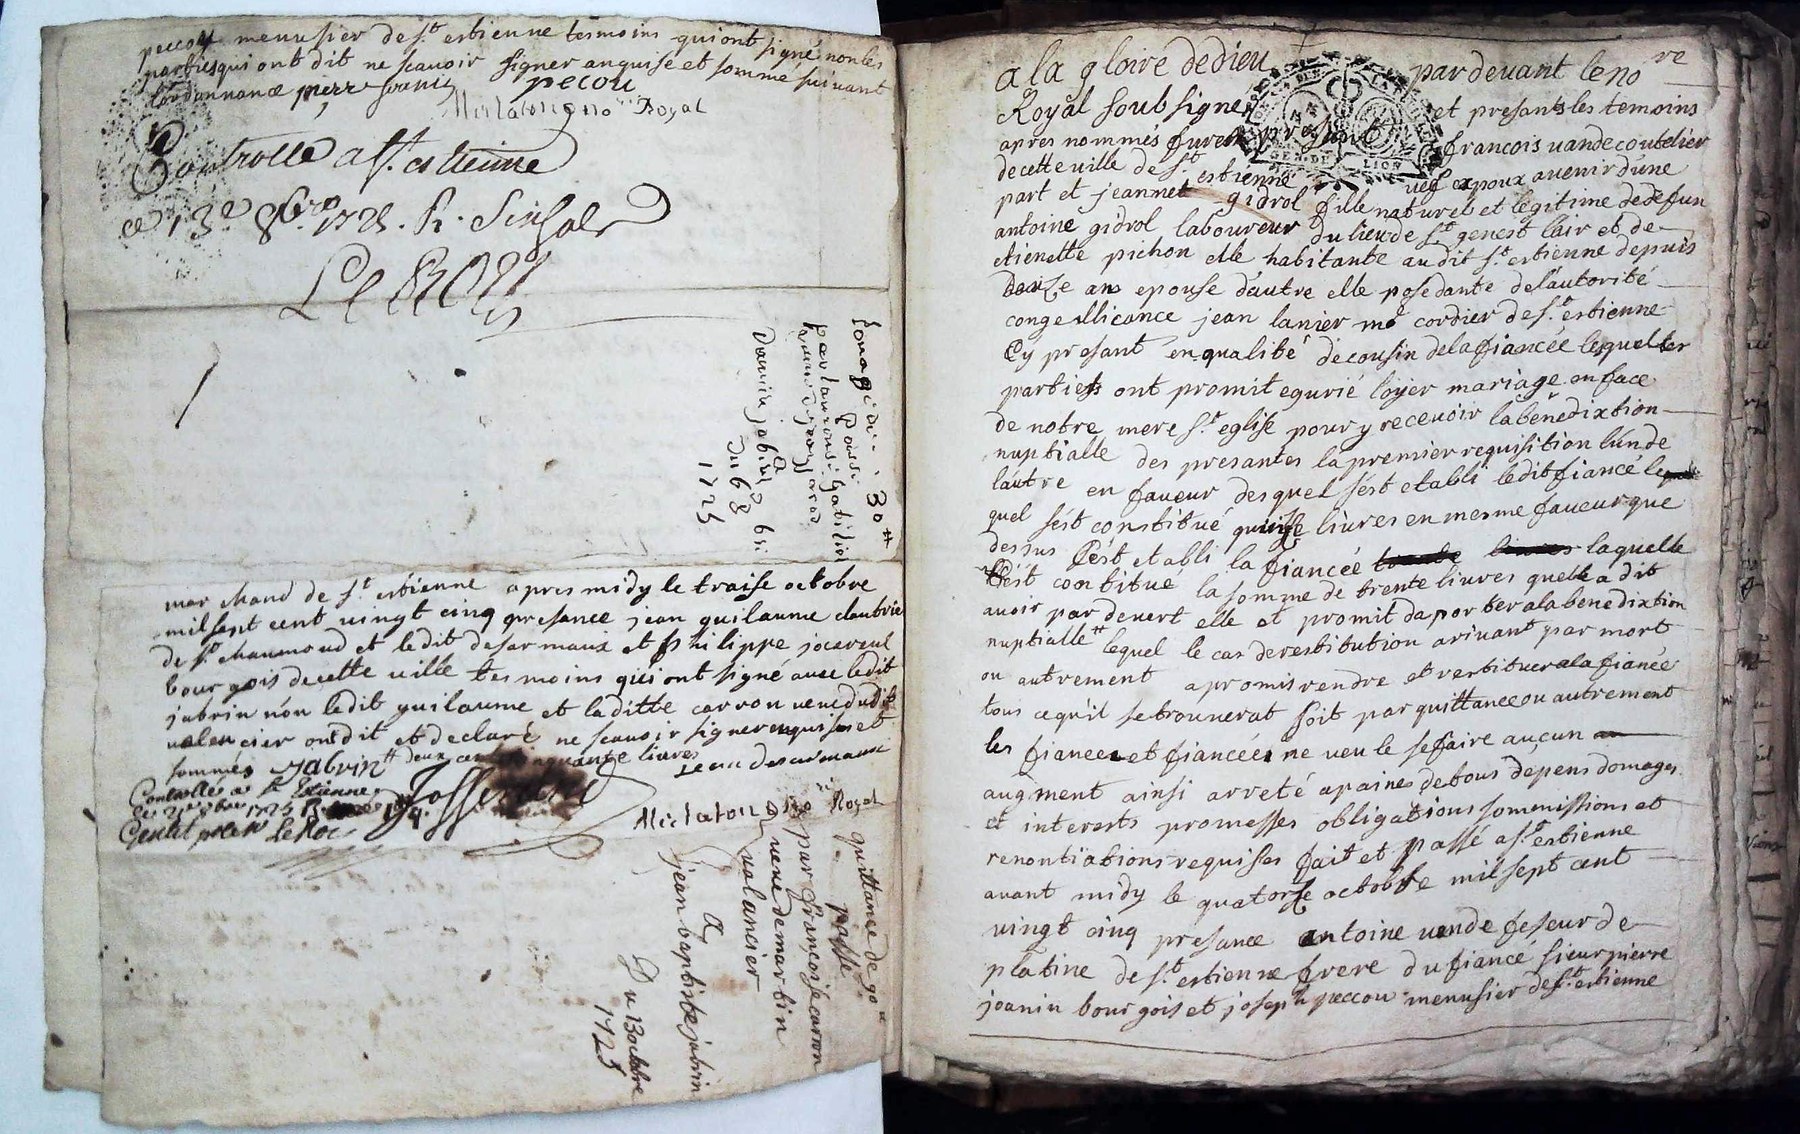 peccou menusier de st. estienne tesmoins qui ont signé non les
parties qui ont dit ne scavoir signer anquise et somme suivant
lordonnance pierre joanin pecou
no Royal
Controlle a st. estienne
ce 13e 8bre 1725. R.
Le Roy
30
passé
Du 6 8bre
1725
marchand de st. estienne apres midy le traise octobre
milsept cent vingt cinq presance jean guilaume
de st. chaumond et ledit desarmaux et philippe
bourgois de cette ville tesmoins qui ont signé avec ledit
jabrin non ledit guilaume et laditte carron veuve dudit
valencier ont dit et declaré ne scavoir signer enquis et
sommés jabrin
deux cent cinquante livres
Controllé a st. Etienne
Le Roy
no Royal
quittance de
passé
par francoise carron
veuve de martin
valancier
a
jean baptiste jabrin
Du 13 octobre
1725
a la gloire de dieu par devant le no re
Royal soubsigne et presants les temoins
GEN. DE LION
apres nommés furent presant francois vande coutelier
de cette ville de st. estienne veuf expoux avenir d'une
part et jeannet gidrol fille naturel et legitime de defun
antoine gidrol laboureur du lieu de st. genest lair et de
etienette pichon elle habitante audit st. estienne depuis
douze ans epouse d'autre elle posedante de lautorité
conge llicance jean lanier me cordier de st. estienne
Cy presant en qualité de cousin de la fiancée lesquelles
parties ont promit mariage en face
de notre mere st. eglise pour y recevoir la benedixtion
nuptialle des presantes la premier requisition lun de
lautre en faveur desquel sést etabli ledit fiancé le
quel sést constitué quinse livres en mesme faveur que
dessus sést etabli la fiancée laquelle
sést contitue la somme de trente livres quelle a dit
avoir par devert elle et promit daporter a la benedixtion
nuptialle lequel le cas de restitution arivant par mort
ou autrement a promis rendre et restituer a la fiancée
tous ce qu'il se trouverat soit par quittance ou autrement
les fiancer et fianceés ne veule se faire auçun
augment ainsi arreté a paines de tous depens domages
et interests promesses obligations sommissions et
renontiations requises fait et passé a st. estienne
avant midy le quatorse octobre milsept cent
vingt cinq presance antoine vande feseur de
platine de st. estienne frere du fiancé sieur pierre
joanin bourgois et joseph peccou menusier de st. estienne